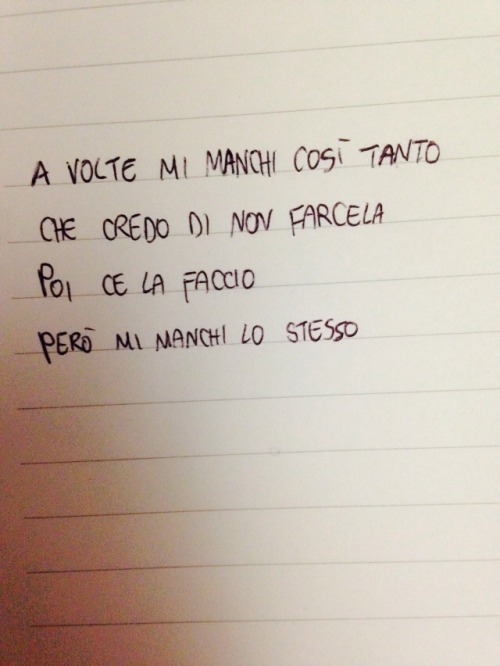 A VOLTE MI MANCHI COSÌ TANTO
CHE CREDO DI NON FARCELA
POI CE LA FACCIO
PERÒ MI MANCHI LO STESSO